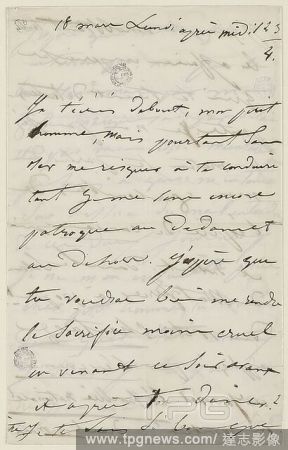 18 mars Lundi après midi 2 3/4.
Je t'écris debout, mon petit
homme, mais pourtant sans
oser me risquer à te conduire
tant je me sens encore
patraque au dedans et
au dehors. J'espère que
tu voudras bien me rendre
le sacrifice moins cruel
en venant ce soir avant
et après le dîner.
TPG
www.tpgnews.com 達志影像